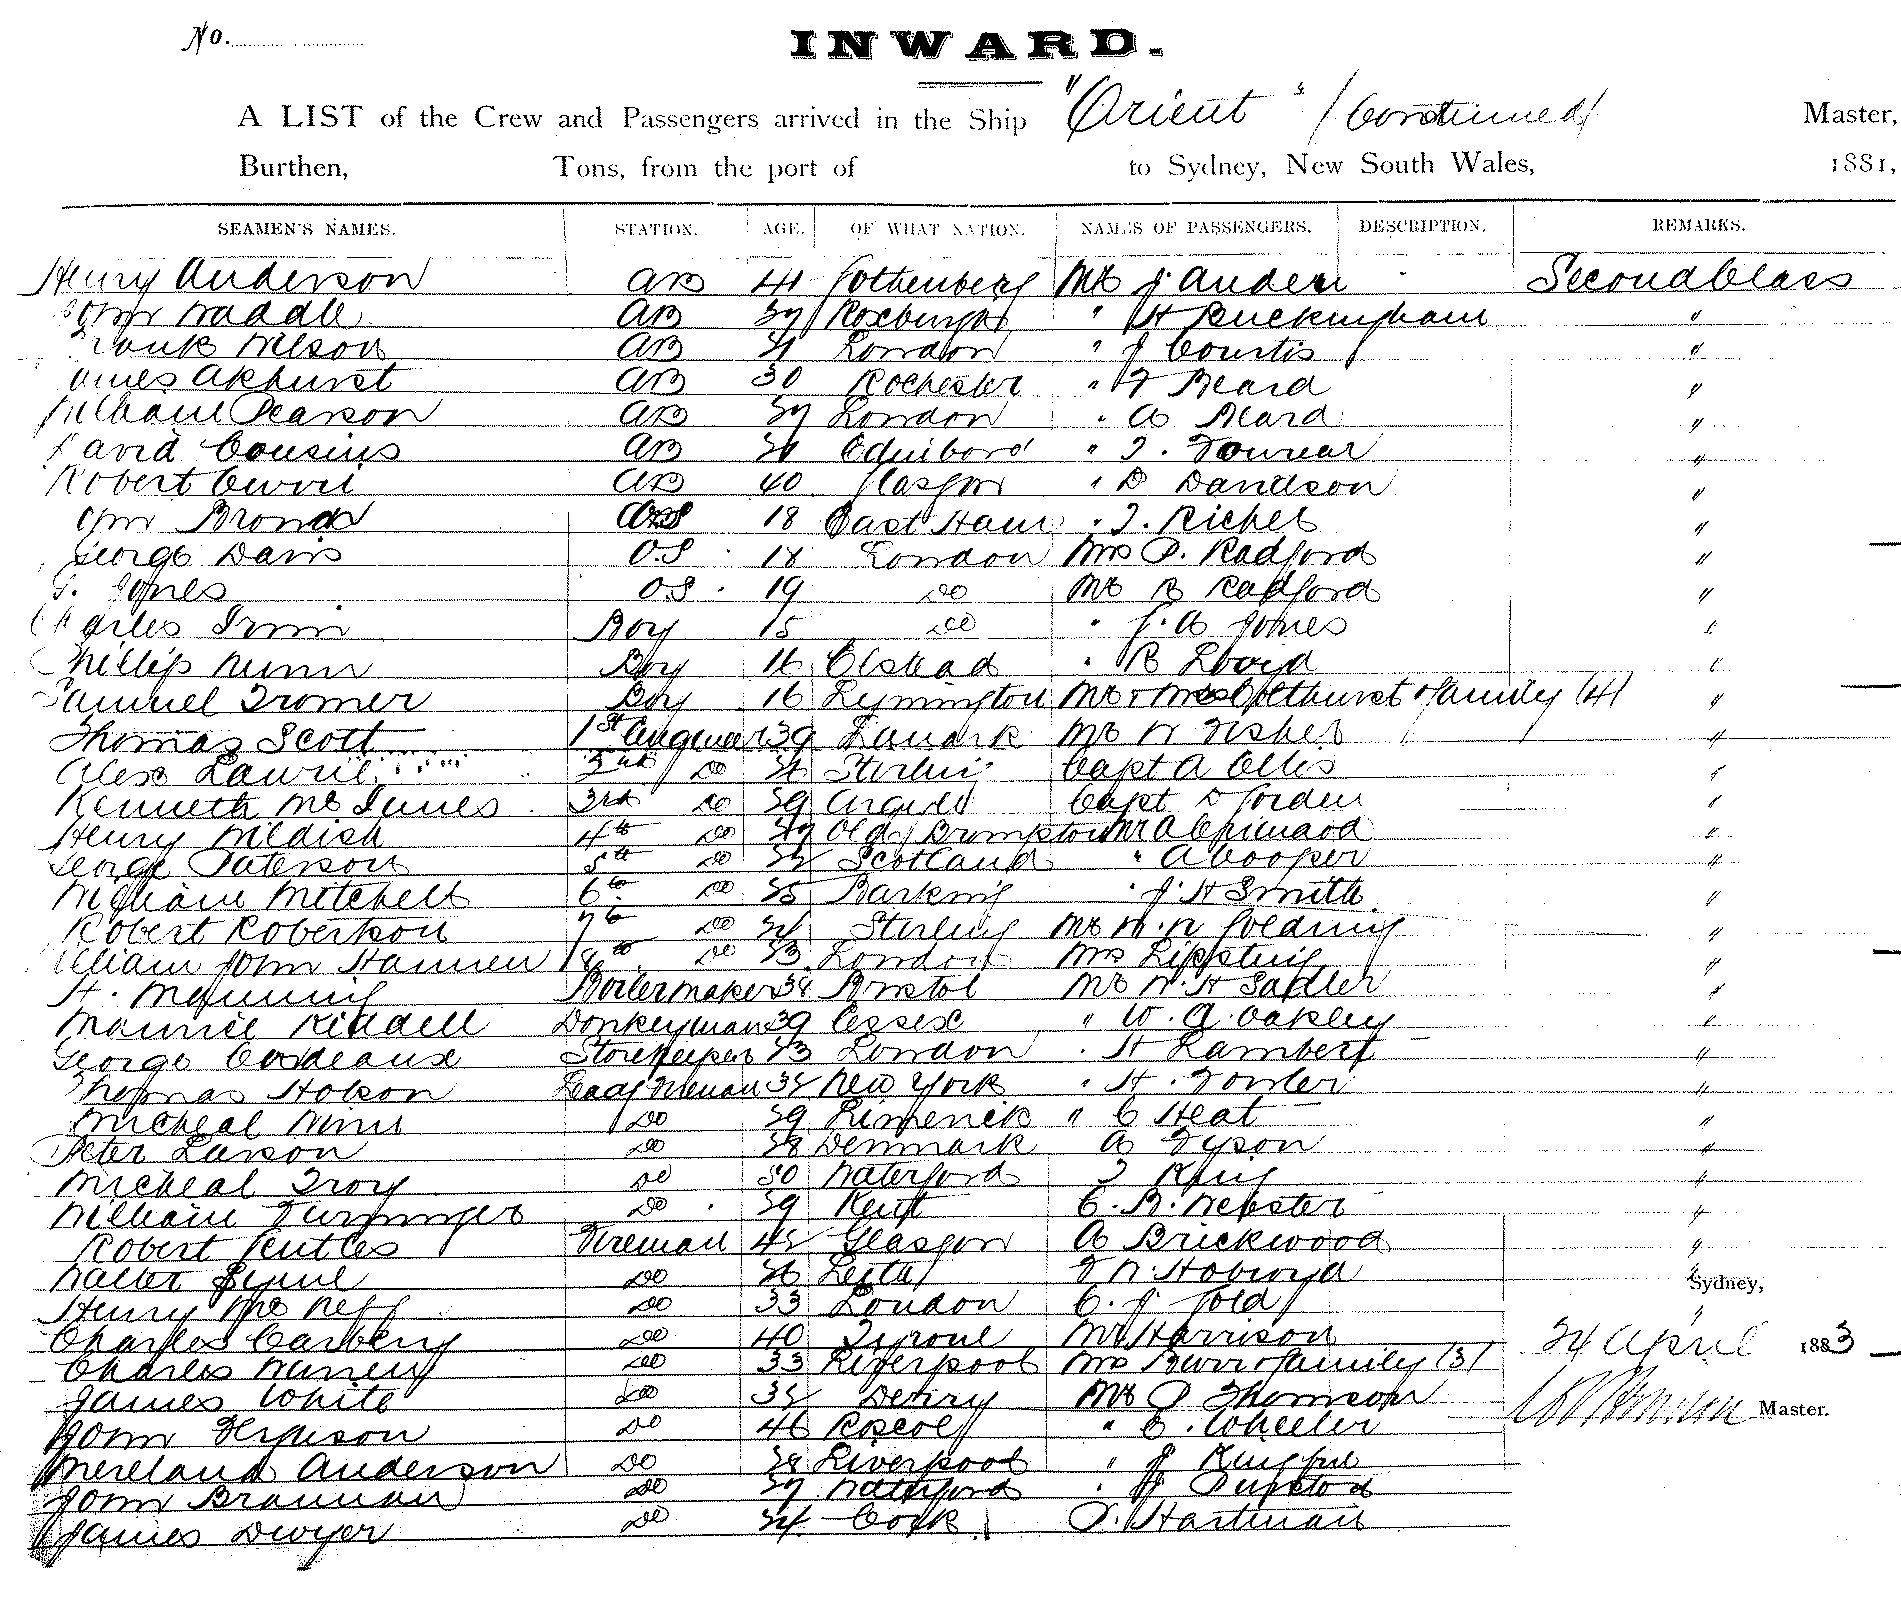 No.
INWARD.
A LIST of the Crew and Passengers arrived in the Ship "Orient" (Continued) Master,
Burthen, Tons, from the port of to Sydney, New South Wales, 1881,
SEAMEN'S NAMES. STATION. AGE. OF WHAT NATION. NAMES OF PASSENGERS. DESCRIPTION. REMARKS.
Henry Anderson AB 41 Gothenberg Mr J Anders Second Class
John Waddle AB Roxburgh " H Buckingham "
Frank Nelson AB London " J Courtis "
James Akhurst AB 30 Rochester " F Beard "
William Pearson AB London " A Beard "
David Cousins AB " T. "
Robert AB 40 Glasgow " D Davidson "
John OS 18 East Ham " T. "
George Davis O.S 18 London Mrs P. Radford "
G. Jones O.S. 19 Do Mr B Radford "
Charles Irwin Boy 15 Do " J. A Jones "
Phillip Nunn Boy 16 Elstead " B Lloyd "
Samuel Tromer Boy 16 Lymington Mr & Mrs & family (4) "
Thomas Scott 1st Engineer 39 Lanark Mr W Fisher "
Alex Lawrie 2nd Do Sterling Capt A Ellis "
Kenneth McInnes 3rd Do 29 Capt D Gorden "
Henry Mildish 4th Do Old Brompton Mr A "
George Paterson 5th Do Scotland " A Cooper "
William Mitchell 6th Do 25 Barking " J. H Smith "
Robert Robertson 7th Do Sterling Mr W. N Golding "
William John Hannen 8th Do 23 London Mrs "
H. Manning Boilermaker 38 Bristol Mr W. H Sadler "
Maurice Riddell Donkeyman 39 Essex " W. A. Oakley "
George Cordeaux Storekeeper 23 London " H Lambert "
Thomas Hobson Leadg Fireman New York " H. Fowler "
Micheal Do 29 Limerick " C Heat "
Peter Larson Do 28 Denmark A Tyson "
Micheal Troy Do 30 Waterford T King "
William Do 29 Kent C. B. Webster "
Robert Fireman Glasgow A Brickwood "
Walter Do Leith F W. "
Sydney,
Henry McNeff Do 33 London C. J. Gold "
Charles Carbery Do 40 Tyrone Mr Harrison 24 April 1883
Charles Do 33 Liverpool Mrs Burr & family (3)
James White Do Derry Mr P Thomson
Master.
John Ferguson Do 46 Roscoe " C. Wheeler
Mereland Anderson Do 28 Liverpool " J
John Brannan Do Waterford " J
James Dwyer Do 24 Cork P. Hartman